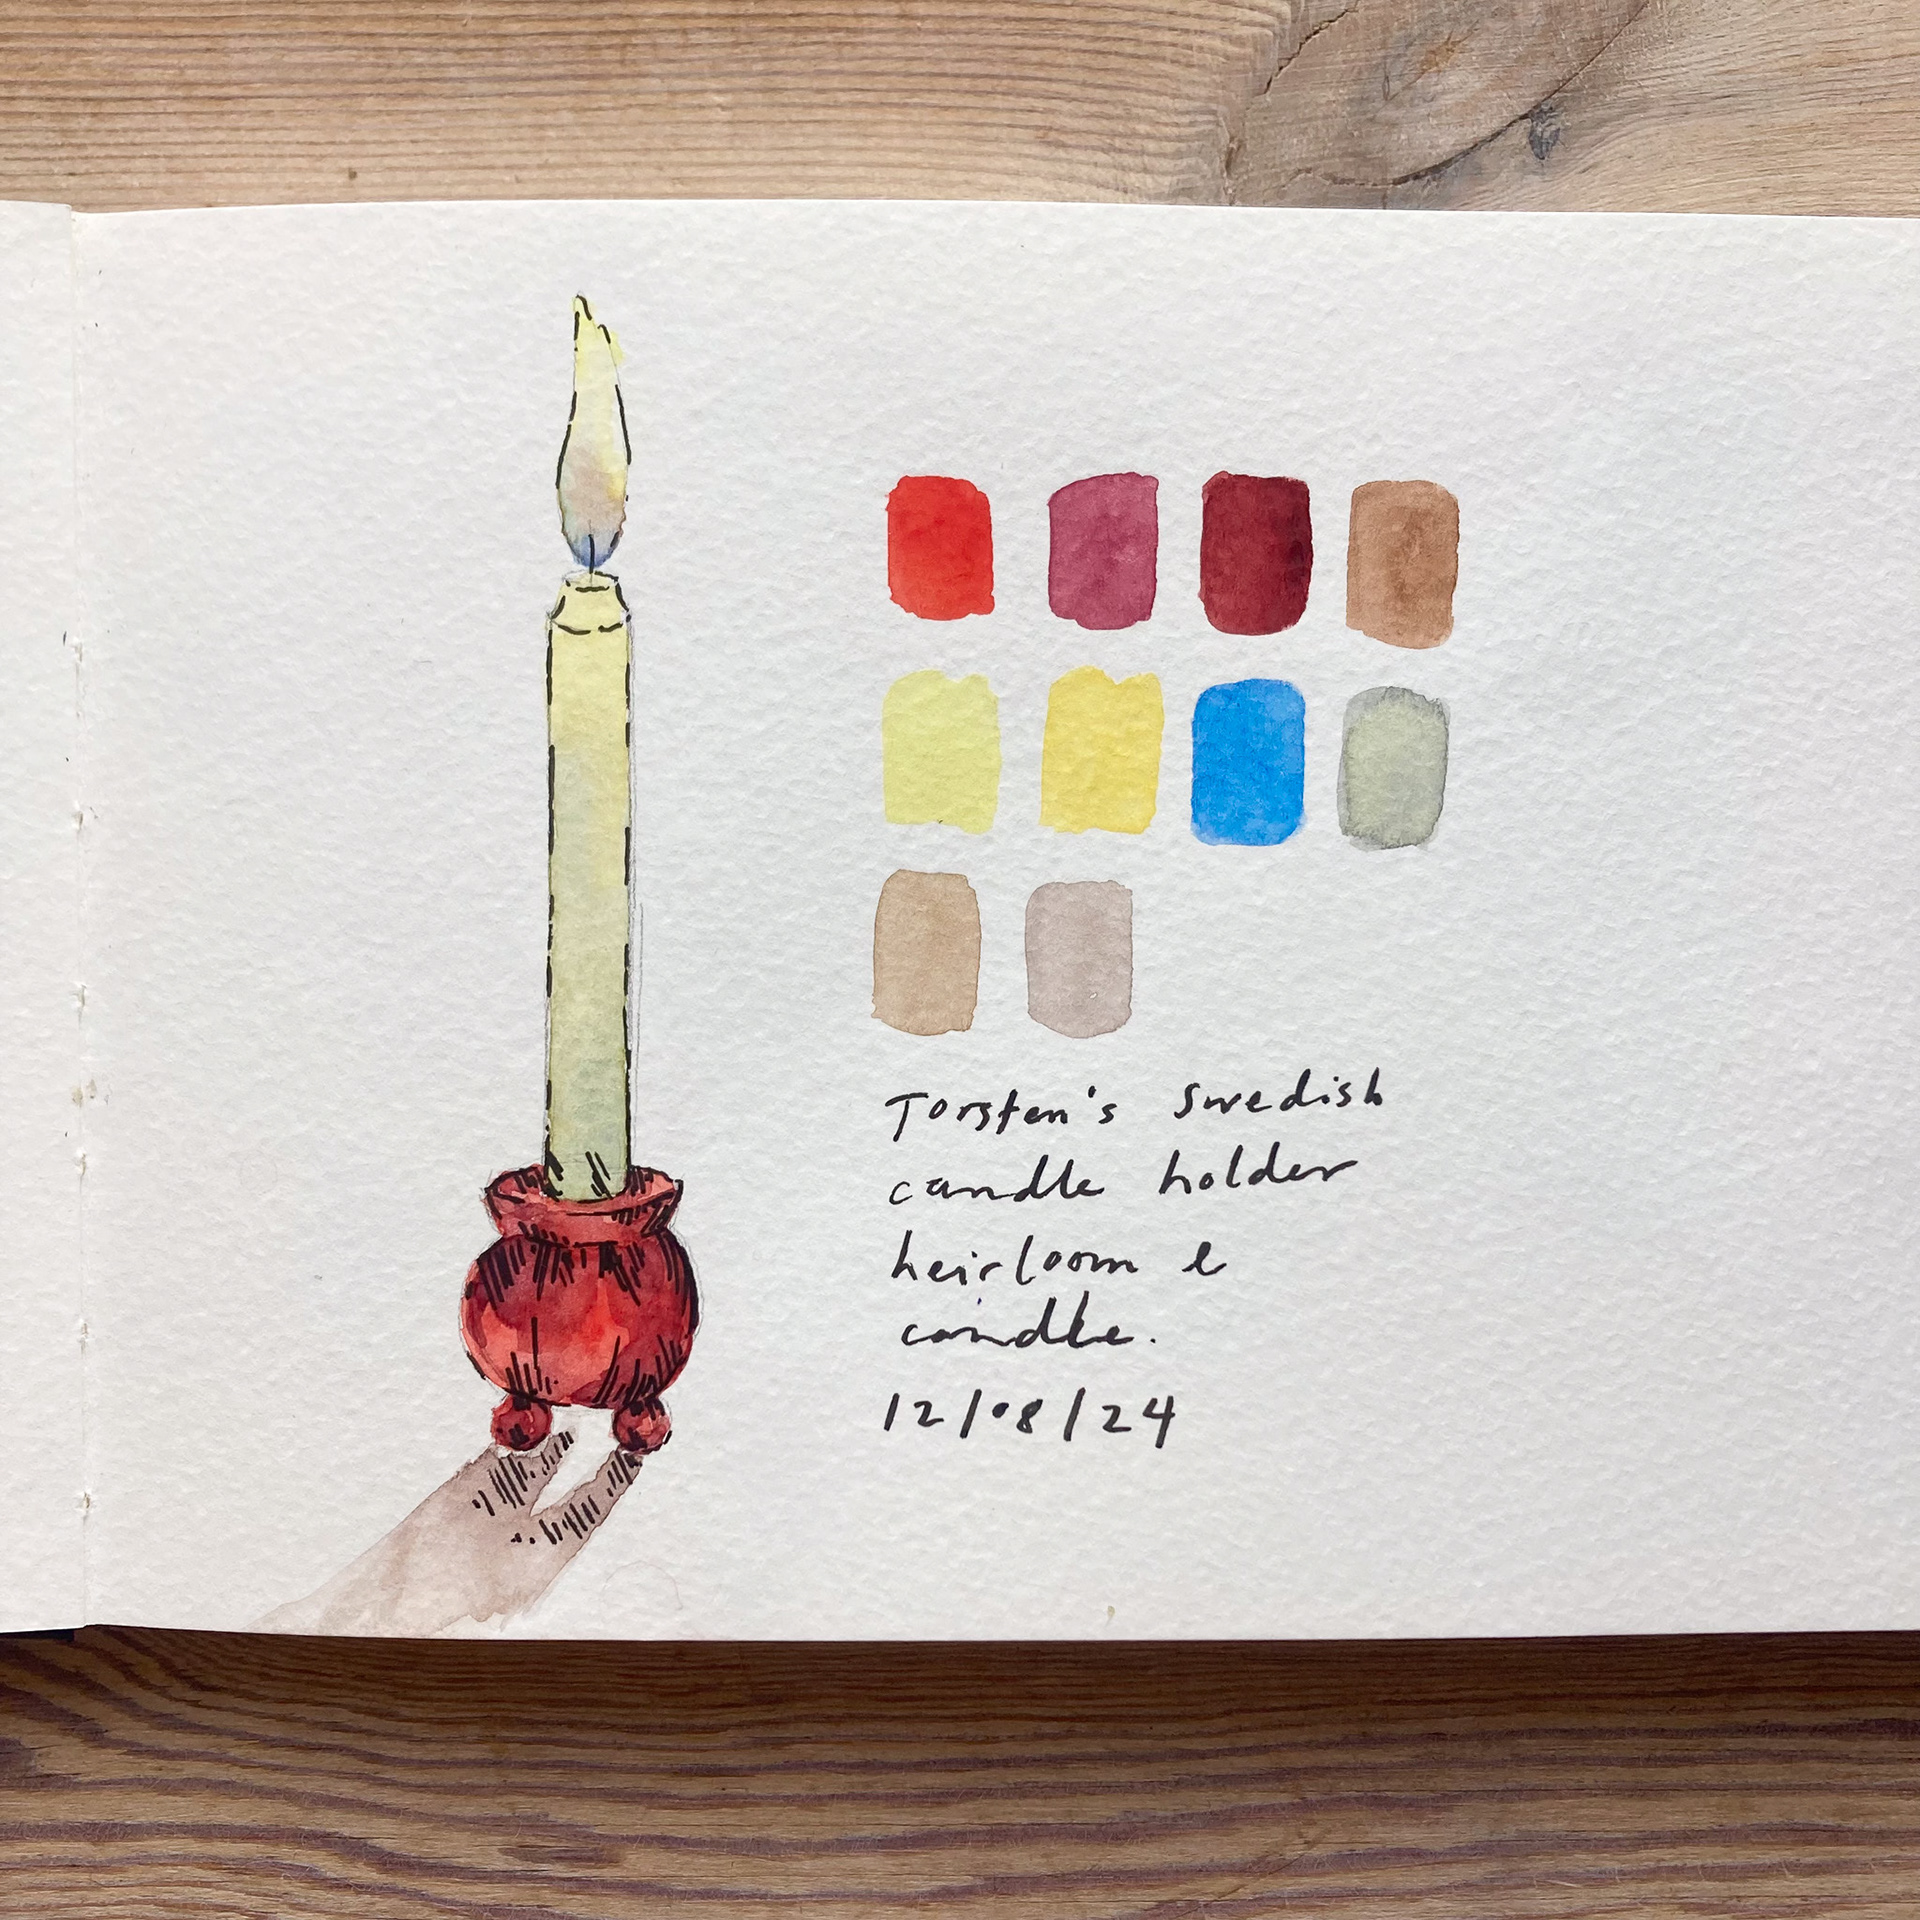 Torsten's Swedish
candle holder
heirloom &
candle.
12/08/24